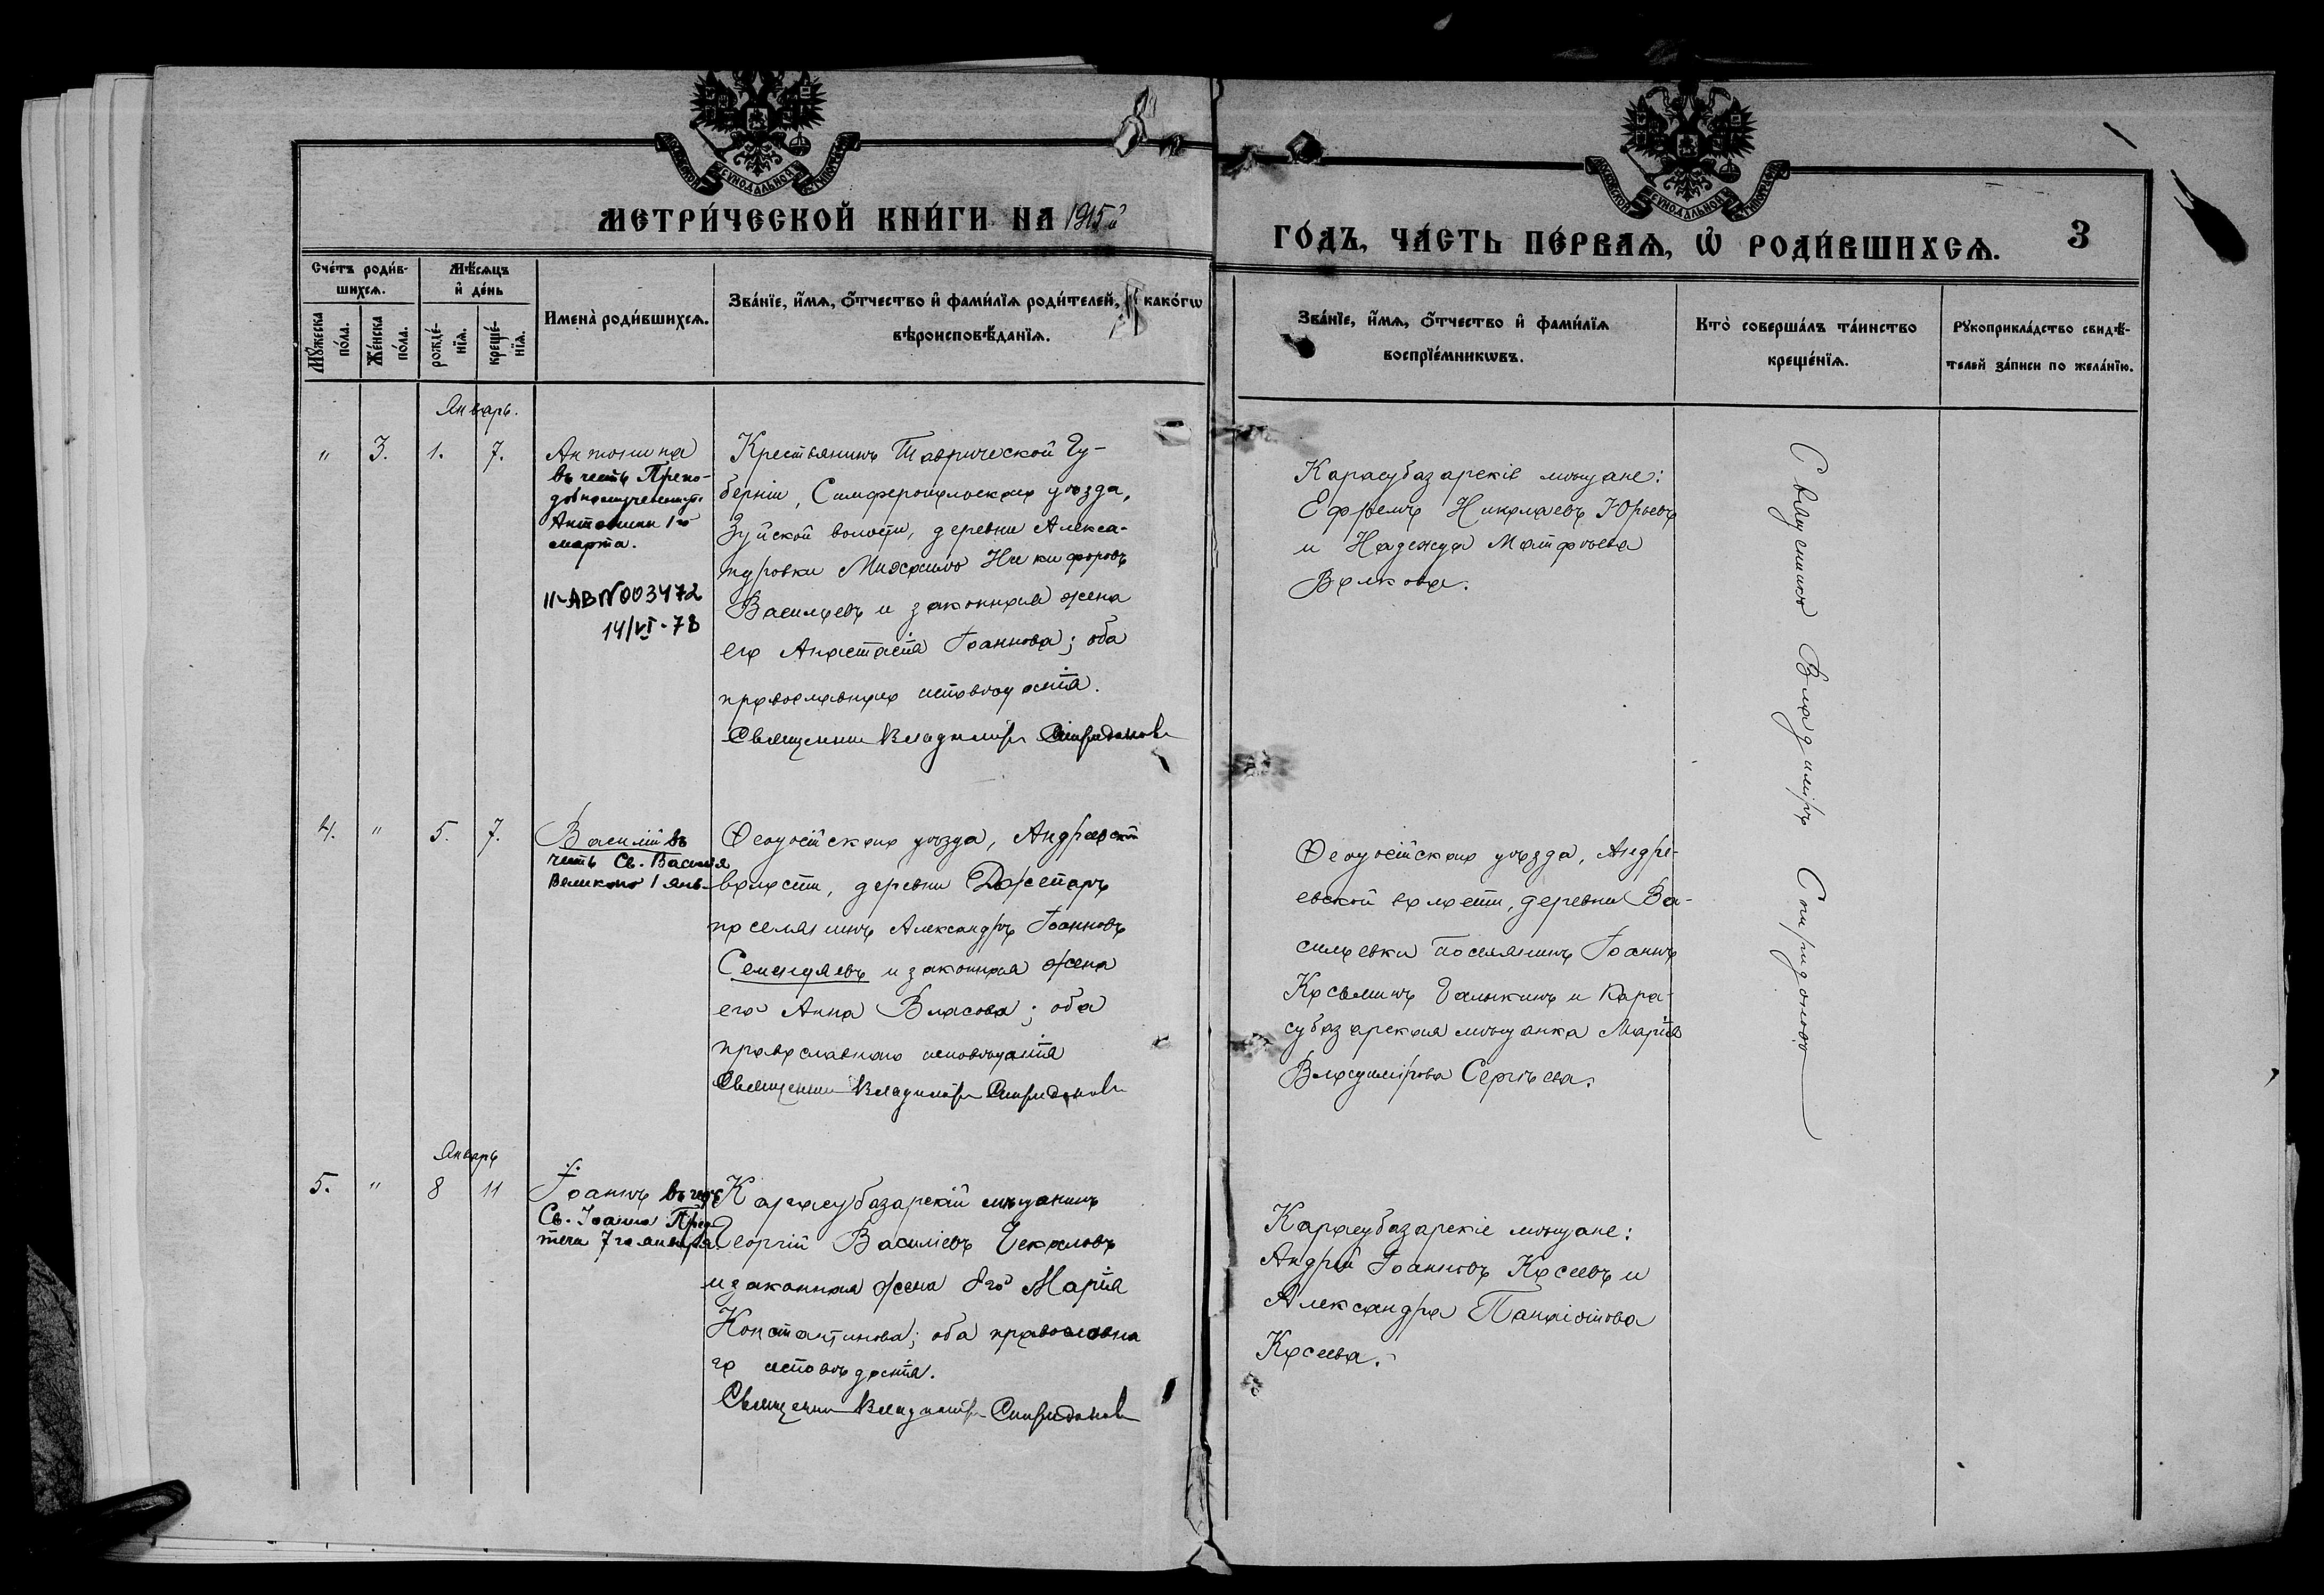 МЕТРИ́ЧЕСКОЙ КНИ́ГИ НА 1915й
ГО́ДЪ, ЧА́СТЬ ПЕ́РВАѦ, Ѡ РОДИ́ВШИХСѦ.
3
Сче́тъ роди́в-
шихсѧ.
Мѣ́сѧцъ
и҆ де́нь
Мꙋ́жеска
по́ла.
Же́нска
по́ла.
рожде́-
нїѧ.
креще́-
нїѧ.
Имена̀ роди́вшихсѧ.
Зва́нїе, и҆́мѧ, ѻ҆́тчество и҆ фами́лїѧ роди́телей, и҆ како́гѡ
вѣроисповѣ́данїѧ.
Зва́нїе, и҆́мѧ, ѻ҆́тчество и҆ фами́лїѧ
воспрїе́мникѡвъ.
Кто̀ соверша́лъ та́инство
креще́нїѧ.
Рꙋкоприкла́дство свидѣ́-
телей за́писи по жела́нїю.
Январь.
" 3. 1. 7.
Антонина
въ честь Препо-
добномученицы
Антонины 1го
марта.
II-АВ №003472
14/VI-78
Крестьянинъ Таврической Гу-
берніи, Симферопольскаго уѣзда,
Зуйской волости, деревни Алекса-
ндровки Михаилъ Никифоровъ
Васильевъ и законная жена
его Анастасія Іоаннова; оба
православнаго исповѣданія.
Священник Владиміръ Спиридоновъ
Карасубазарскіе мѣщане:
Ефремъ Николаевъ Юрьевъ
и Надежда Матфѣева
Волкова.
Священникъ Владиміръ Спиридоновъ
4. " 5. 7.
Василій въ
честь Св. Василія
Великого 1 янв.
Ѳеодосійскаго уѣзда, Андреевской
волости, деревни Джепаръ
поселянинъ Александръ Іоанновъ
Семендяевъ и законная жена
его Анна Власова; оба
православнаго исповѣданія
Священник Владиміръ Спиридоновъ
Ѳеодосійскаго уѣзда, Андре-
евской волости, деревни Ва-
сильевки поселянинъ Іоаннъ
Косьминъ Галыкинъ и Кара-
субазарская мѣщанка Марія
Владимірова Сергѣева.
Январь
5. " 8 11
Іоаннъ въ честь
Св. Іоанна Пред-
течи 7го января.
Карасубазарскій мѣщанинъ
Георгій Василіевъ Чекаловъ
и законная жена Его Марія
Константинова; оба православна
го исповѣданія.
Священник Владиміръ Спиридоновъ
Карасубазарскіе мѣщане:
Андрей Іоанновъ Косеевъ и
Александра Панаіотова
Косеева.